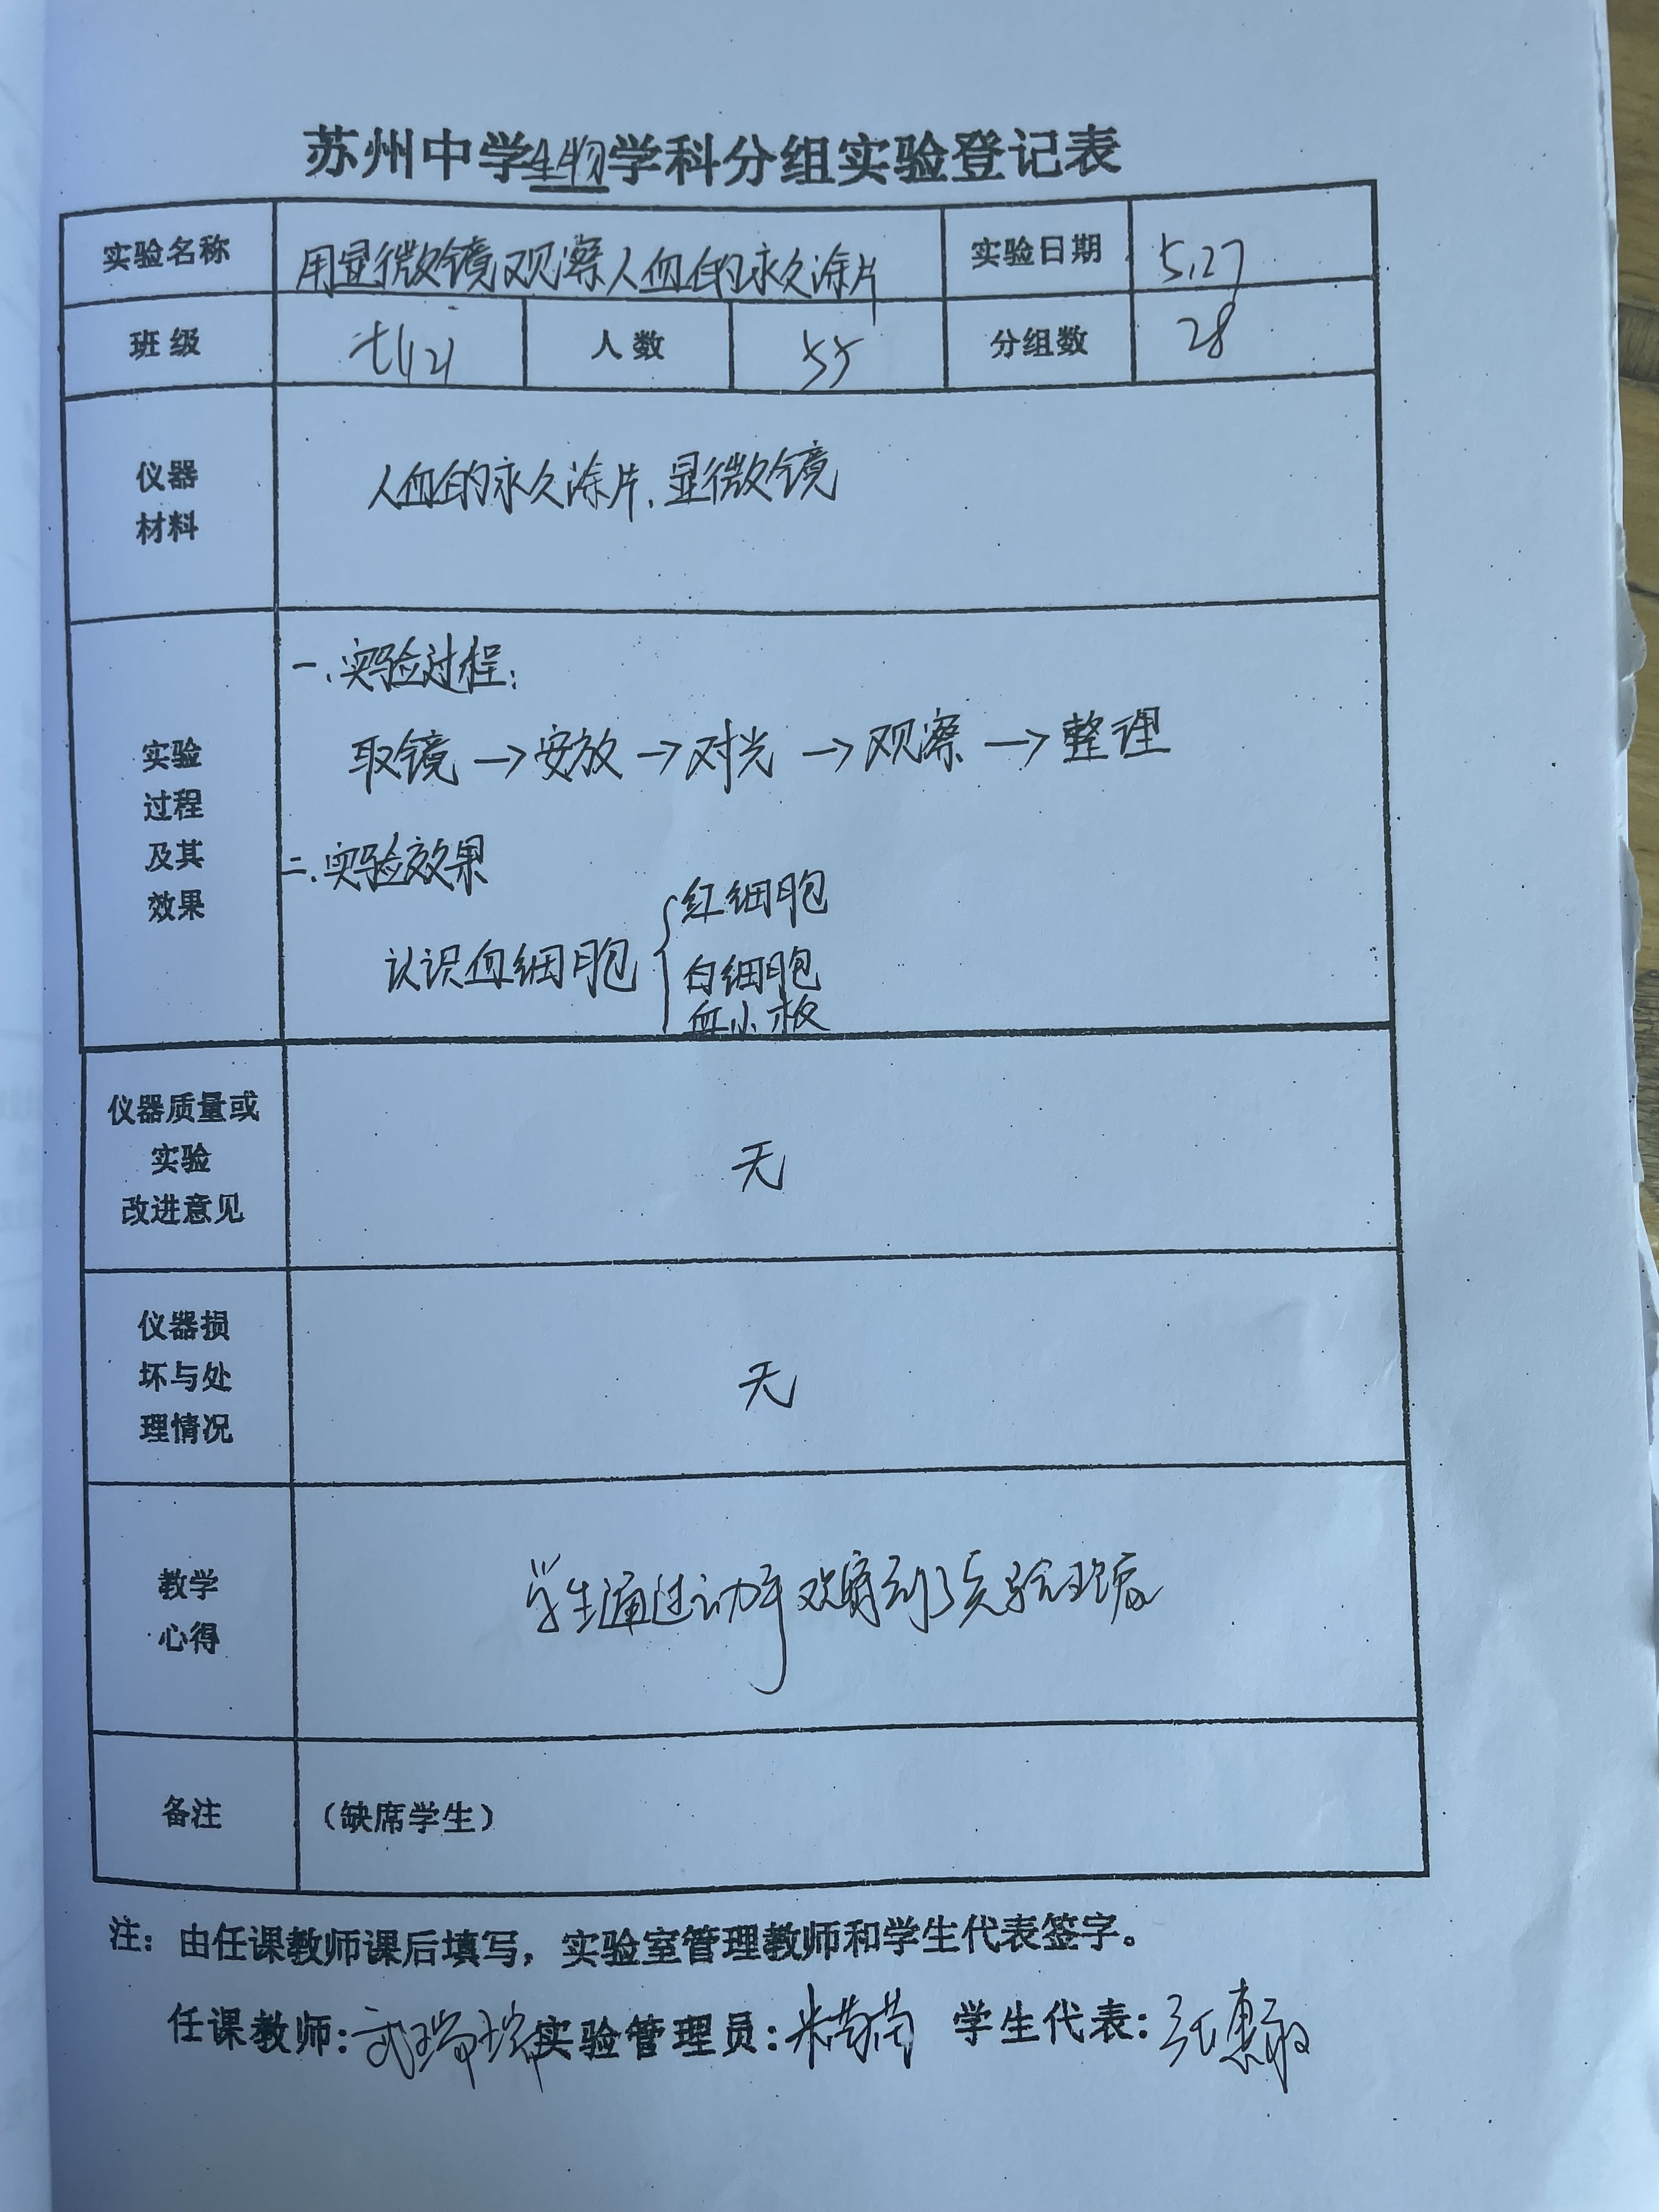 苏州中学生物学科分组实验登记表
实验名称 用显微镜观察人血的永久涂片 实验日期 5.27
班级 七(12) 人数 55 分组数 28
仪器
材料
人血的永久涂片.显微镜
实验
过程
及其
效果
一.实验过程:
取镜→安放→对光→观察→整理
二.实验效果
认识血细胞
红细胞
白细胞
血小板
仪器质量或
实验
改进意见
无
仪器损
坏与处
理情况
无
教学
心得
学生通过动手观察到了实验现象
备注 (缺席学生)
注: 由任课教师课后填写,实验室管理教师和学生代表签字。
任课教师:武瑞瑞 实验管理员: 学生代表: